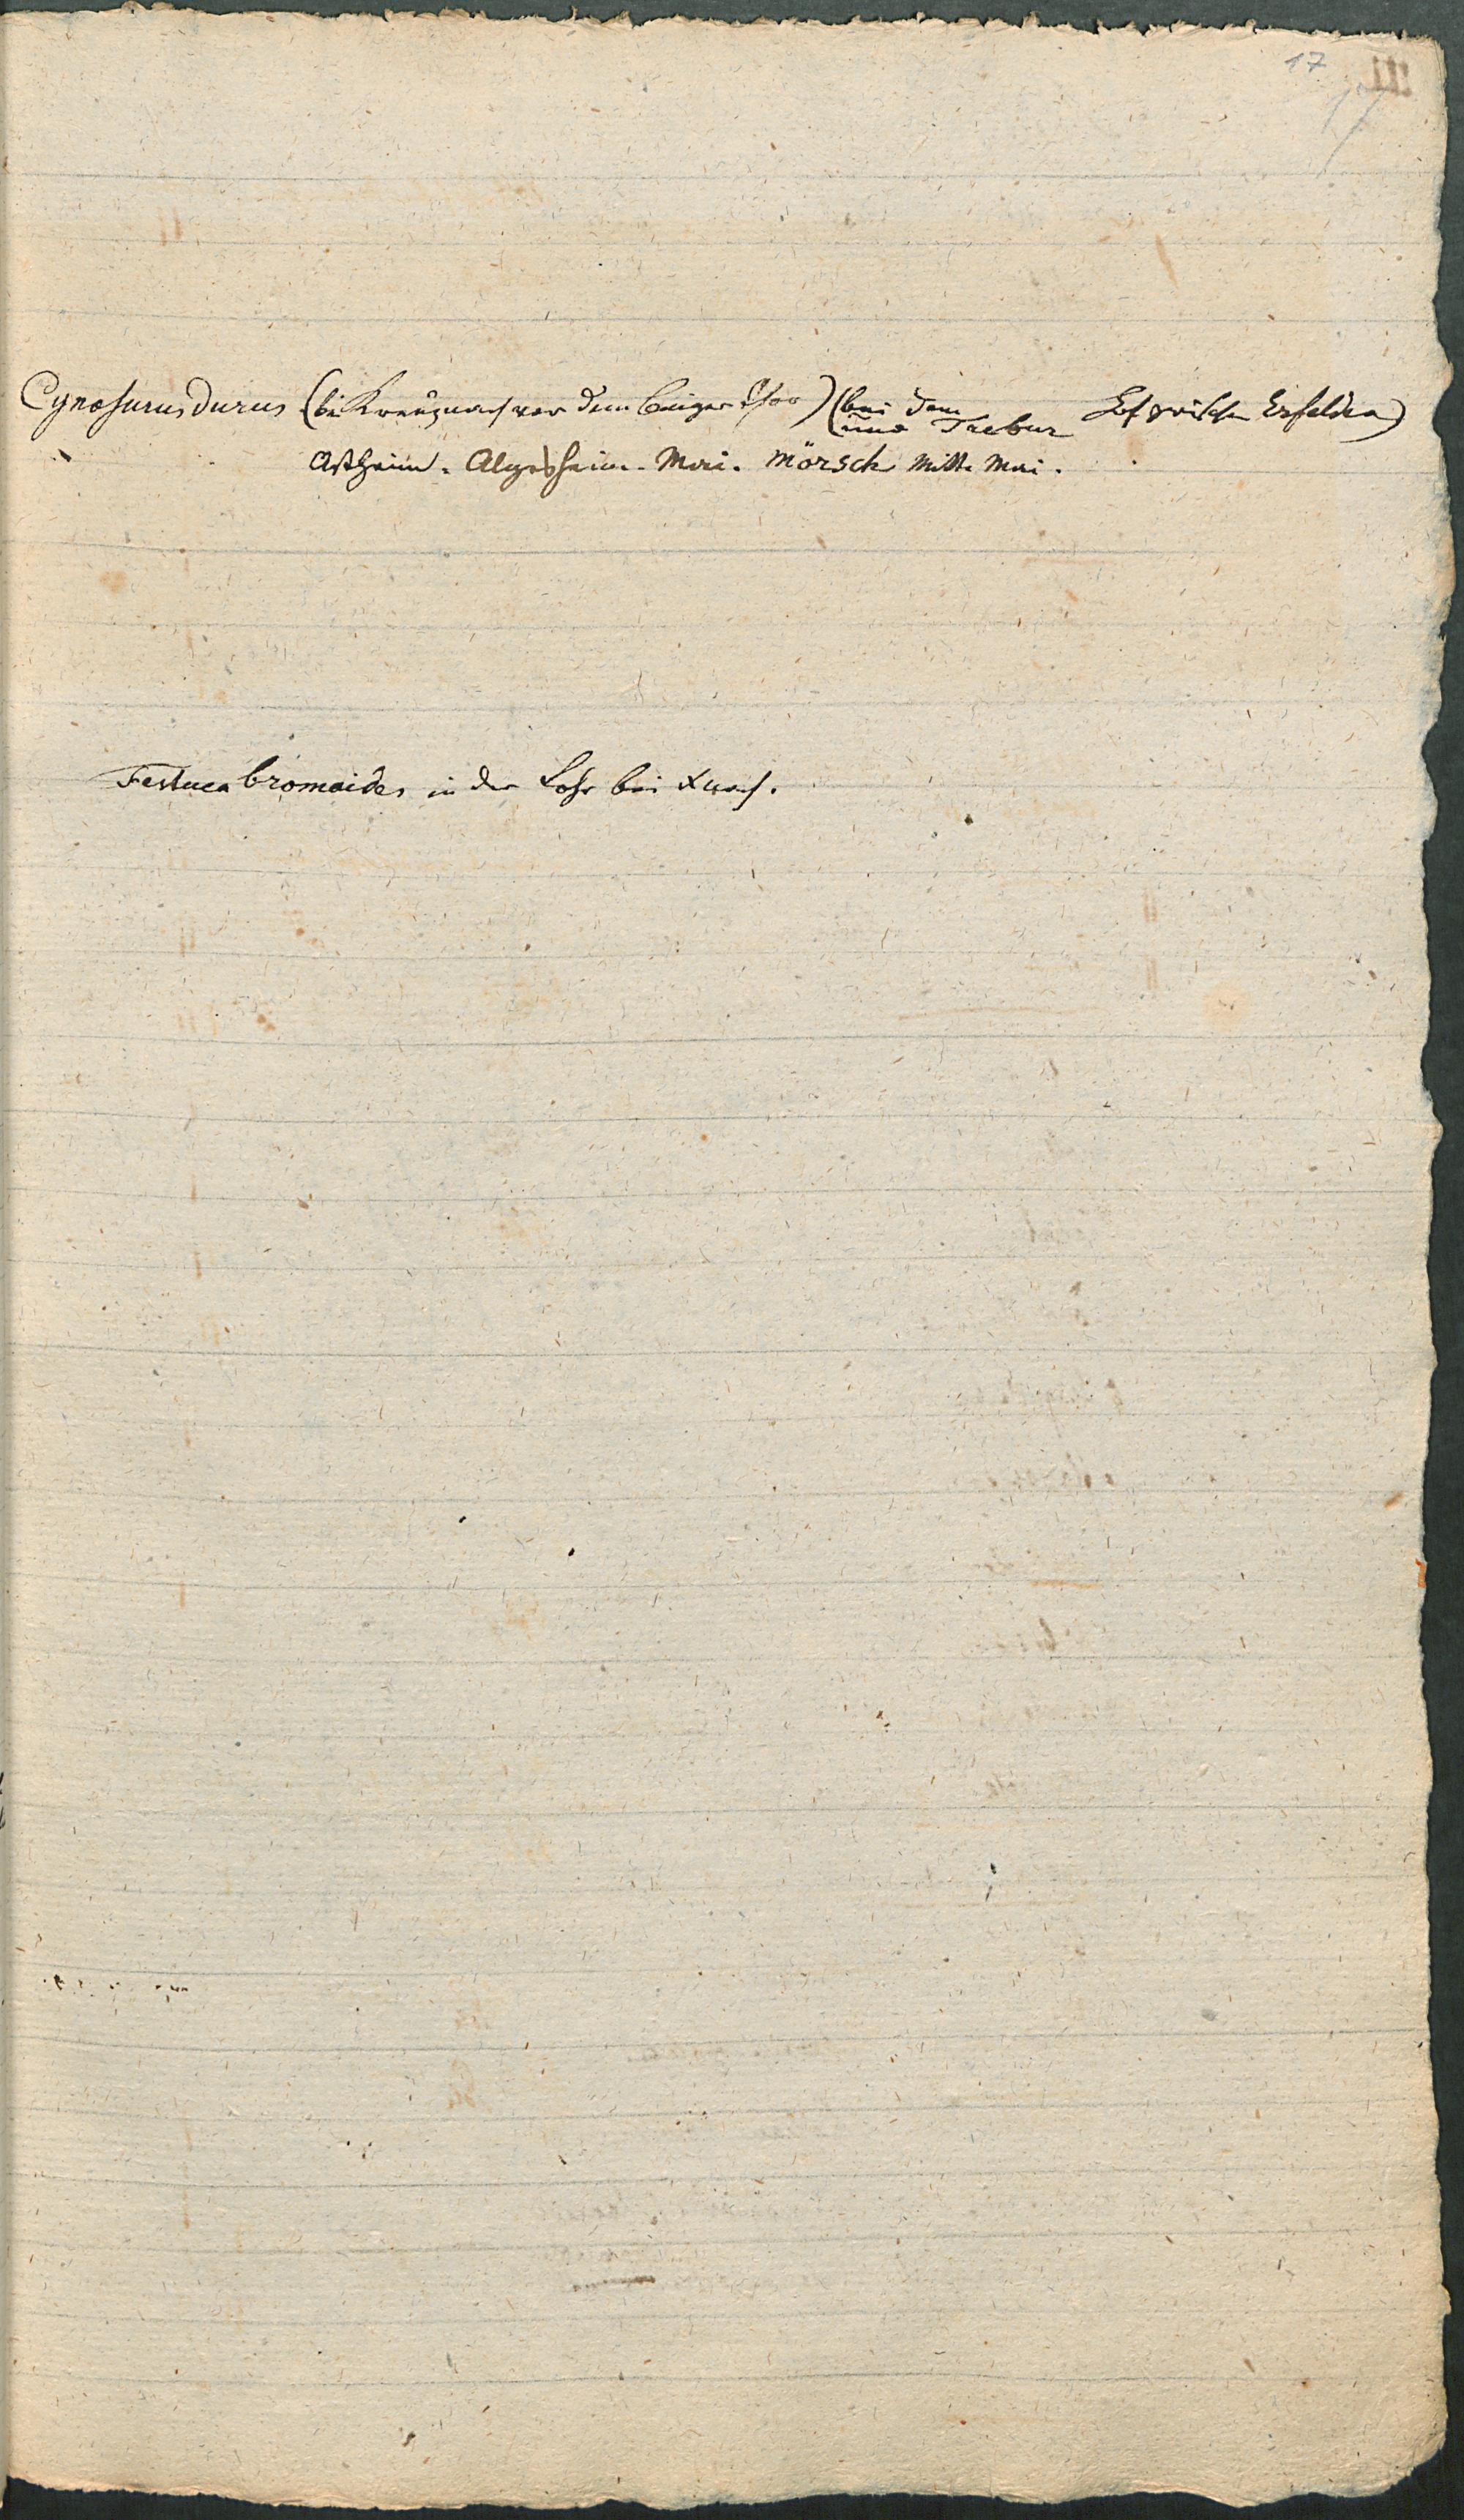 17
17
Cynosurus durus (bei Kreuznach vor dem binger Thor) (bei dem Hof zwischen Erfelden)
und Trebur
Astheim. Algesheim. Mai. Mörsch Mitte Mai.
Festuca bromoides in der Lohr bei Xnach.